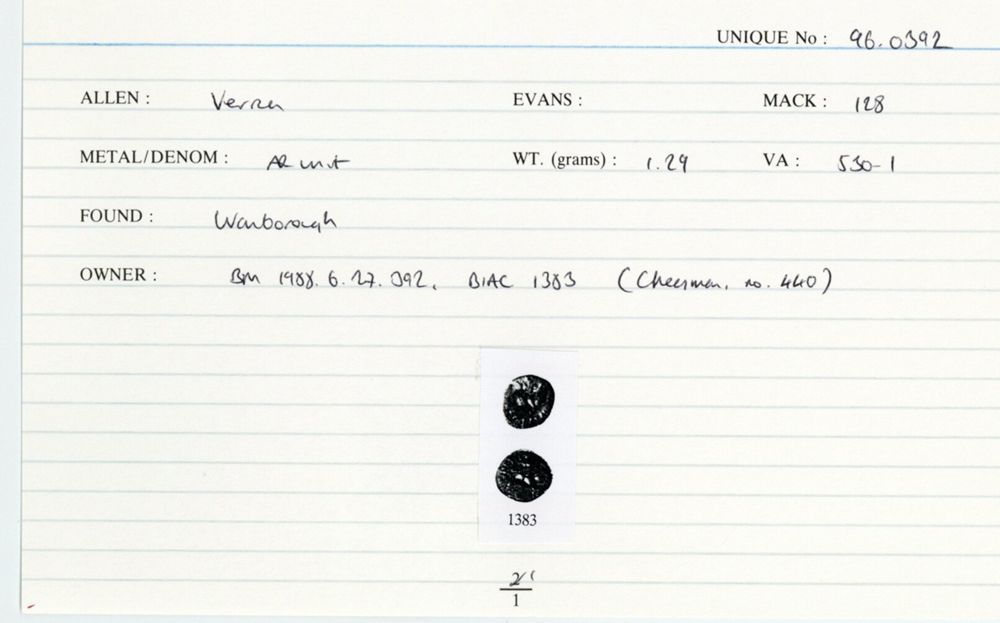 UNIQUE No : 96.0392
ALLEN : Verica EVANS : MACK : 128
METAL/DENOM : AR unit WT. (grams) : 1.29 VA : 530-1
FOUND : Wanborough
OWNER : BM 1988.6.27.392, BIAC 1383 (Cheesman, no. 440)
1383
1